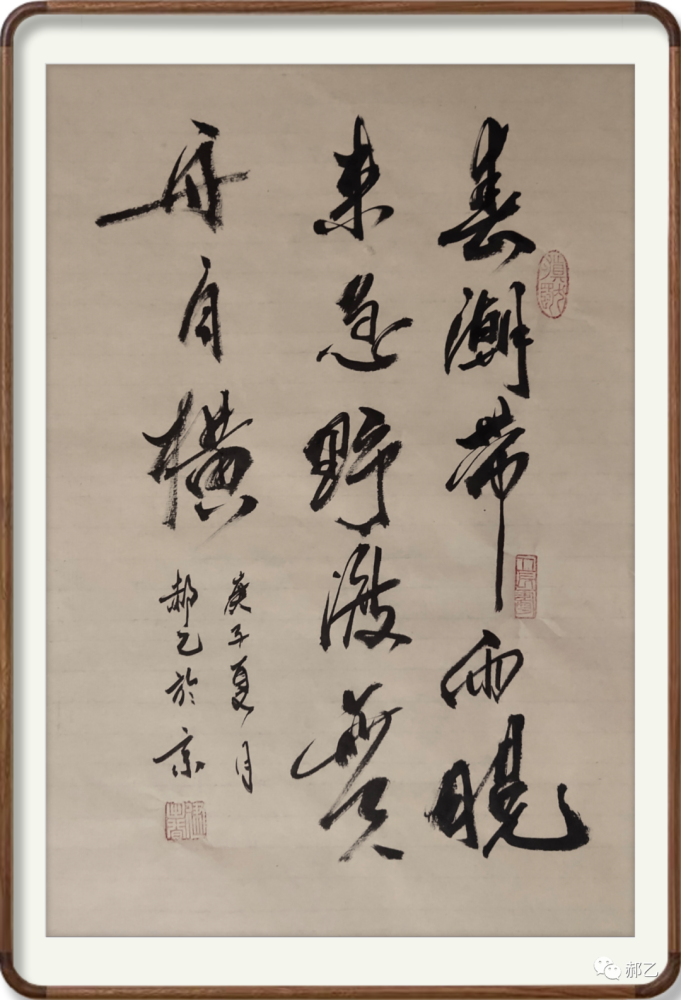 春潮帶雨晚
来急野渡無人
舟自横
庚子夏月
郝乙於京
郝乙